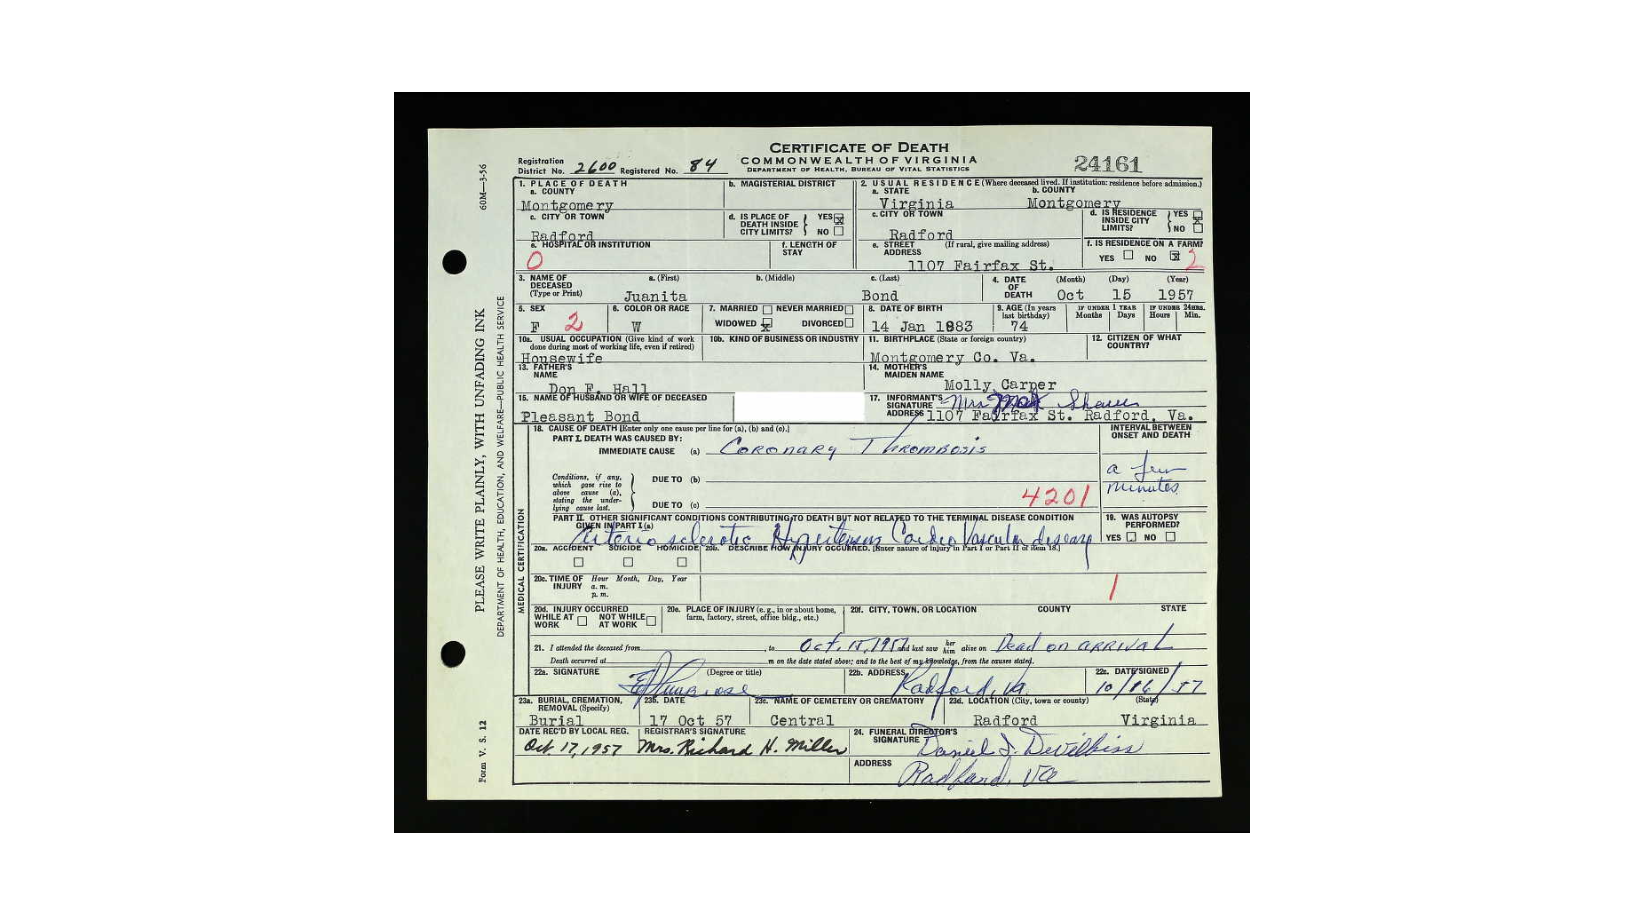 CERTIFICATE OF DEATH
COMMONWEALTH OF VIRGINIA
DEPARTMENT OF HEALTH, BUREAU OF VITAL STATISTICS
24161
Registration District No. 2600 Registered No. 84
60M—3-56
PLEASE WRITE PLAINLY, WITH UNFADING INK
DEPARTMENT OF HEALTH, EDUCATION, AND WELFARE—PUBLIC HEALTH SERVICE
Form V. S. 12
1. PLACE OF DEATH
a. COUNTY
Montgomery
b. MAGISTERIAL DISTRICT
2. USUAL RESIDENCE (Where deceased lived. If institution: residence before admission.)
a. STATE
Virginia
b. COUNTY
Montgomery
c. CITY OR TOWN
Radford
d. IS PLACE OF DEATH INSIDE CITY LIMITS? YES NO
c. CITY OR TOWN
Radford
d. IS RESIDENCE INSIDE CITY LIMITS? YES NO
e. HOSPITAL OR INSTITUTION
0
f. LENGTH OF STAY
e. STREET ADDRESS (If rural, give mailing address)
1107 Fairfax St.
f. IS RESIDENCE ON A FARM?
YES NO 2
3. NAME OF DECEASED (Type or Print)
a. (First) b. (Middle) c. (Last)
Juanita Bond
4. DATE OF DEATH (Month) (Day) (Year)
Oct 15 1957
5. SEX
F 2
6. COLOR OR RACE
W
7. MARRIED NEVER MARRIED
WIDOWED DIVORCED
8. DATE OF BIRTH
14 Jan 1883
9. AGE (In years last birthday)
74
IF UNDER 1 YEAR Months Days
IF UNDER 24HRS. Hours Min.
10a. USUAL OCCUPATION (Give kind of work done during most of working life, even if retired)
Housewife
10b. KIND OF BUSINESS OR INDUSTRY
11. BIRTHPLACE (State or foreign country)
Montgomery Co. Va.
12. CITIZEN OF WHAT COUNTRY?
13. FATHER'S NAME
Don F. Hall
14. MOTHER'S MAIDEN NAME
Molly Carper
15. NAME OF HUSBAND OR WIFE OF DECEASED
Pleasant Bond
17. INFORMANT'S SIGNATURE Mrs
ADDRESS 1107 Fairfax St. Radford, Va.
MEDICAL CERTIFICATION
18. CAUSE OF DEATH [Enter only one cause per line for (a), (b) and (c).]
PART I. DEATH WAS CAUSED BY:
IMMEDIATE CAUSE (a) Coronary Thrombosis
INTERVAL BETWEEN ONSET AND DEATH
a few minutes
Conditions, if any, which gave rise to above cause (a), stating the underlying cause last.
DUE TO (b)
DUE TO (c)
4201
PART II. OTHER SIGNIFICANT CONDITIONS CONTRIBUTING TO DEATH BUT NOT RELATED TO THE TERMINAL DISEASE CONDITION GIVEN IN PART I (a)
Arterio sclerotic Hypertensive Cardio Vascular disease
19. WAS AUTOPSY PERFORMED?
YES NO
20a. ACCIDENT SUICIDE HOMICIDE
20b. DESCRIBE HOW INJURY OCCURED. [Enter nature of injury in Part I or Part II of item 18.]
20c. TIME OF INJURY Hour Month, Day, Year
a. m.
p. m.
1
20d. INJURY OCCURRED
WHILE AT WORK NOT WHILE AT WORK
20e. PLACE OF INJURY (e.g., in or about home, farm, factory, street, office bldg., etc.)
20f. CITY, TOWN, OR LOCATION COUNTY STATE
21. I attended the deceased from to Oct. 15, 1957 and last saw her him alive on Dead on arrival
Death occurred at m on the date stated above; and to the best of my knowledge, from the causes stated.
22a. SIGNATURE (Degree or title)
22b. ADDRESS
Radford, Va.
22c. DATE SIGNED
10/16/57
23a. BURIAL, CREMATION, REMOVAL (Specify)
Burial
23b. DATE
17 Oct 57
23c. NAME OF CEMETERY OR CREMATORY
Central
23d. LOCATION (City, town or county) (State)
Radford Virginia
DATE REC'D BY LOCAL REG.
Oct. 17, 1957
REGISTRAR'S SIGNATURE
Mrs. Richard H. Miller
24. FUNERAL DIRECTOR'S SIGNATURE
Daniel J. DeVilbiss
ADDRESS
Radford, Va